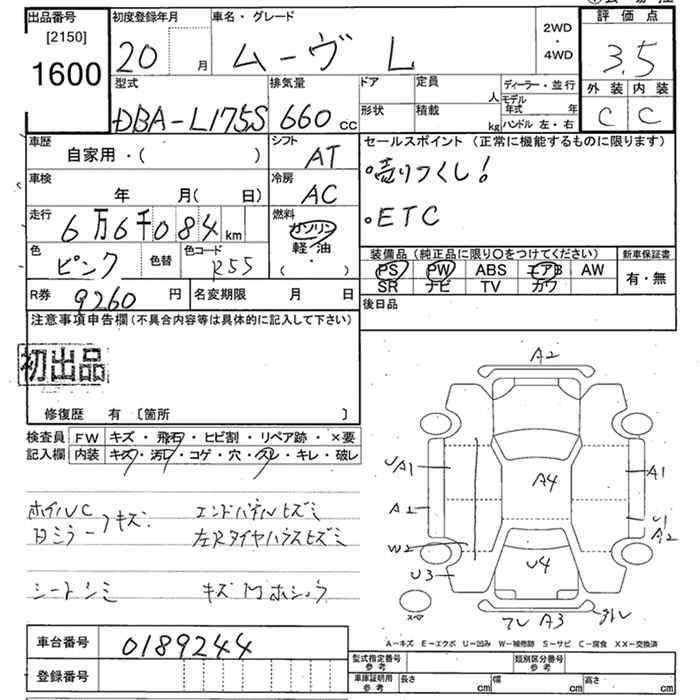 出品番号
[2150]
1600
初度登録年月
20
月
車名・グレード
ムーヴ L
2WD
・
4WD
評価点
3.5
外装 内装
C C
型式
DBA-L175S
排気量
660 cc
ドア
形状
定員 人
積載 kg
ディーラー・並行
モデル年式 年
ハンドル 左・右
車歴
自家用・( )
シフト
AT
車検
年 月( 日)
冷房
AC
走行
6万6千084 km
燃料
ガソリン
軽・油
( ・ )
色
ピンク
色替
色コード
R55
R券
9260 円
名変期限 月 日
セールスポイント (正常に機能するものに限ります)
・売りつくし!
・ETC
装備品 (純正品に限り○をつけてください)
新車保証書
PS PW ABS エアB AW
SR ナビ TV カワ
有・無
後日品
注意事項申告欄(不具合内容等は具体的に記入して下さい)
初出品
修復歴 有 [箇所 ]
検査員
記入欄
FW キズ・飛石・ヒビ割・リペア跡・×要
内装 キズ・汚レ・コゲ・穴・スレ・キレ・破レ
ホイルUC
エンドパネルヒズミ
ドミラーキズ
左Rタイヤハウスヒズミ
シートシミ
A2
UA1
A4
A1
A1
U1
A2
W2
U3
U4
スペア
A3
A-キズ E-エクボ U-凹み W-補修跡 S-サビ C-腐食 XX-交換済
車台番号
0189244
登録番号
型式指定番号
参考
類別区分番号
参考
車庫証明用
参考
長さ cm
幅 cm
高さ cm